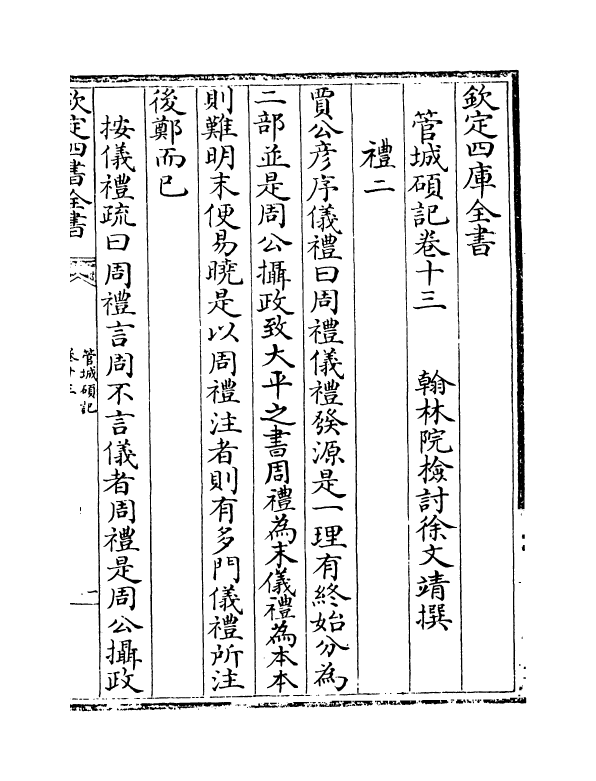 欽定四庫全書
管城碩記卷十三　　翰林院檢討徐文靖撰
禮二
賈公彦序儀禮曰周禮儀禮發源是一理有終始分為
二部並是周公攝政致大平之書周禮為末儀禮為本本
則難明末便易曉是以周禮注者則有多門儀禮所注
後鄭而已
按儀禮疏曰周禮言周不言儀者周禮是周公攝政
欽定四庫全書
管城碩記
卷十三
一